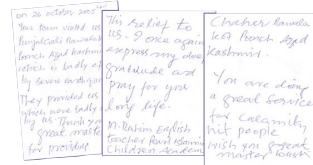 on 26 october 2005
Your team visited us
Punjgiran Rawala
Poonch Azad Kashmir
which is badly effect
by Severe earthquake
They provided us
which were badly
by us. Thank you
great
for providing
This relief to
us. I once again
express my deep
gratitude and
pray for your
long life.
M. Rahim English
teacher
Children Academy
Cheher Rawala
kot Poonch Azad
Kashmir.
You are doing
a great service
for calamity
hit people
wish you great